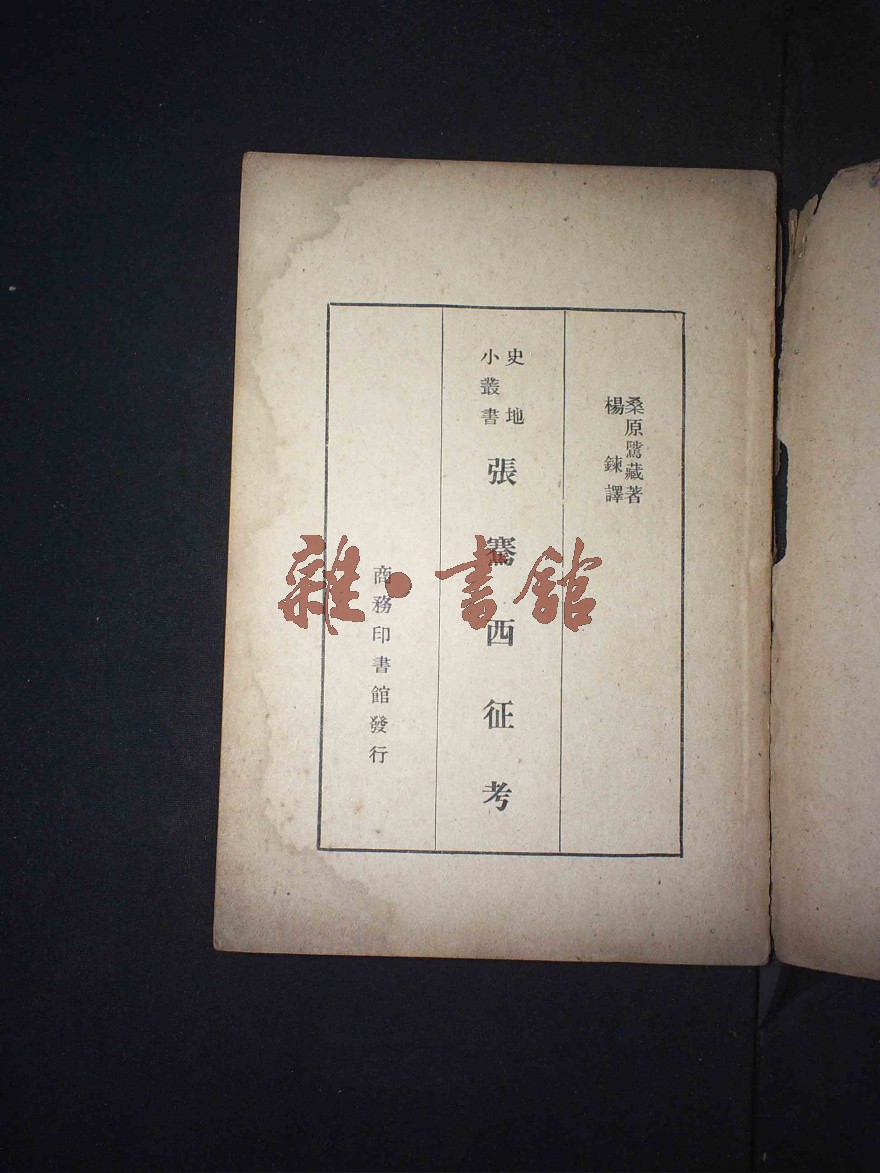 桑原騭藏著
楊鍊譯
史地
小叢書
張騫西征考
商務印書館發行
雜·書館